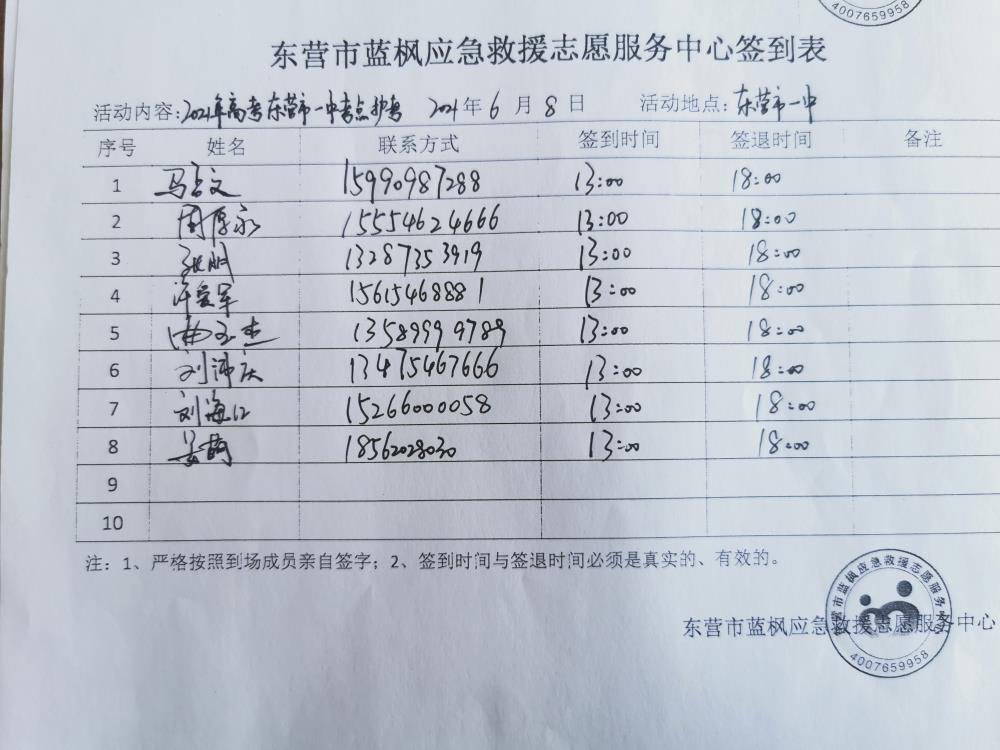 4007659958
东营市蓝枫应急救援志愿服务中心签到表
活动内容:2021年高考东营市一中考点护考 2021年6月8日 活动地点:东营市一中
序号 姓名 联系方式 签到时间 签退时间 备注
1 马文 15990987288 13:00 18:00
2 周厚永 15554624666 13:00 18:00
3 张明 13287353919 13:00 18:00
4 许爱军 15615468881 13:00 18:00
5 曲玉杰 13589999789 13:00 18:00
6 刘沛庆 13475467666 13:00 18:00
7 刘海江 15266000058 13:00 18:00
8 18562028030 13:00 18:00
9
10
注：1、严格按照到场成员亲自签字；2、签到时间与签退时间必须是真实的、有效的。
东营市蓝枫应急救援志愿服务中心
东营市蓝枫应急救援志愿服务中心
4007659958